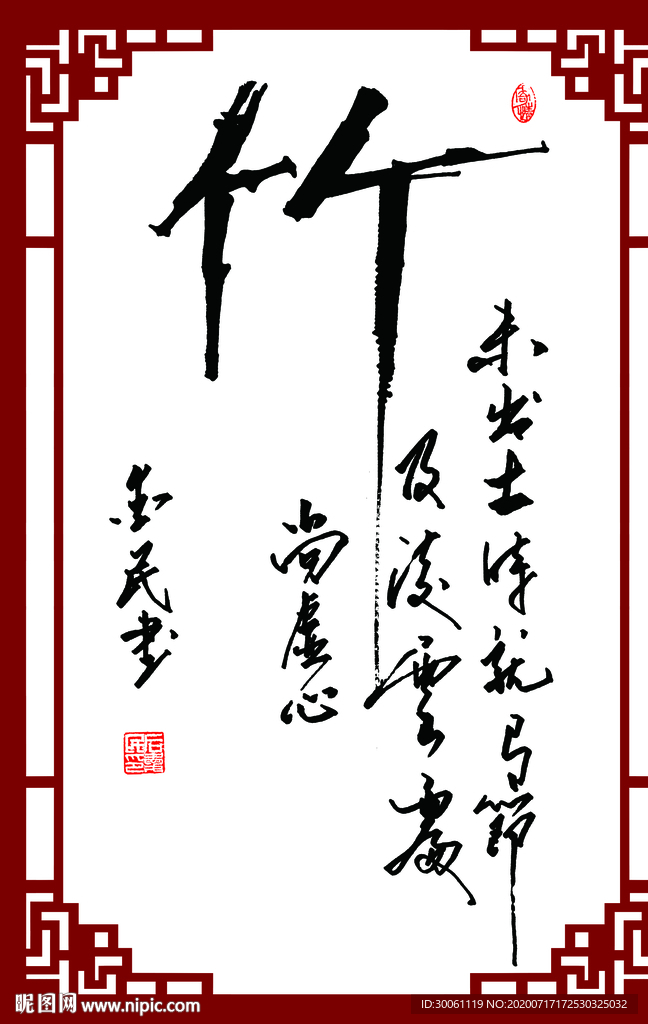 竹
未出土時就有節
及凌雲處
尚虛心
金民書
昵图网 www.nipic.com
ID:30061119 NO:20200717172530325032